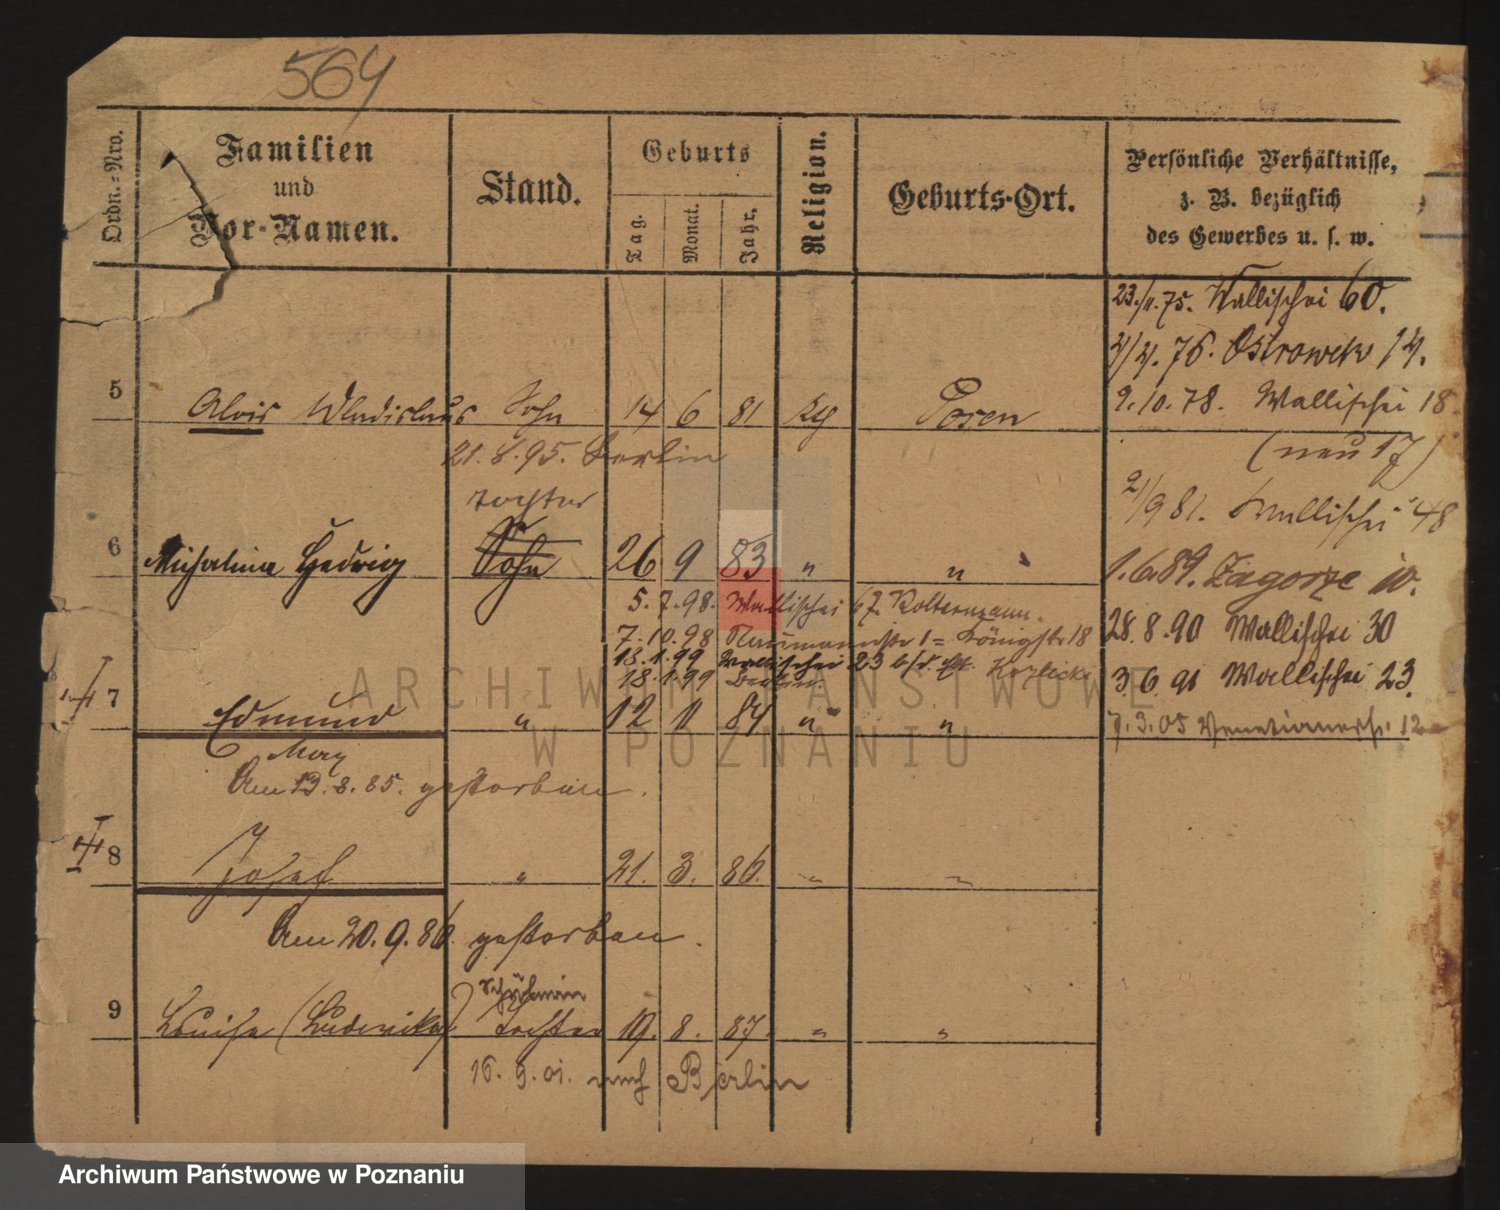 564
Ordn.-Nro.
Familien
und
Vor-Namen.
Stand.
Geburts
Tag.
Monat.
Jahr.
Religion.
Geburts-Ort.
Persönliche Verhältnisse,
z. B. bezüglich
des Gewerbes u. s. w.
23./11.75. Wallischei 60.
2/4. 76. Ostrowek 14.
5 Alois Wladislaus Sohn 14 6 81 Posen
2.10.78. Wallischei 18
(neu 17)
21.8.95. Berlin
21/9 81. Wallischei 48
Tochter
6 Michalina Hedwig Sohn 26 9 83 " "
1.6.89. Zagorze 10.
5.7.98. Wallischei 67. Koltermann.
28.8.90 Wallischei 30
7.10.98 Naumannstr 1 = Königstr 18
13.1.99 Wallischei 23 b/d. Kozlicki
18.1.99 Berlin
3.6.91 Wallischei 23.
7 Edmund " 12 11 84 " "
7.3.05 Venetianerstr. 12
Am 13.8.85. gestorben.
8 Josef " 21. 3. 86. " "
Am 20.9.86. gestorben.
9 Louise (Ludowika) Tochter 19. 8. 87. " "
16.9.01. nach Berlin
ARCHIWUM PAŃSTWOWE
W POZNANIU
Archiwum Państwowe w Poznaniu